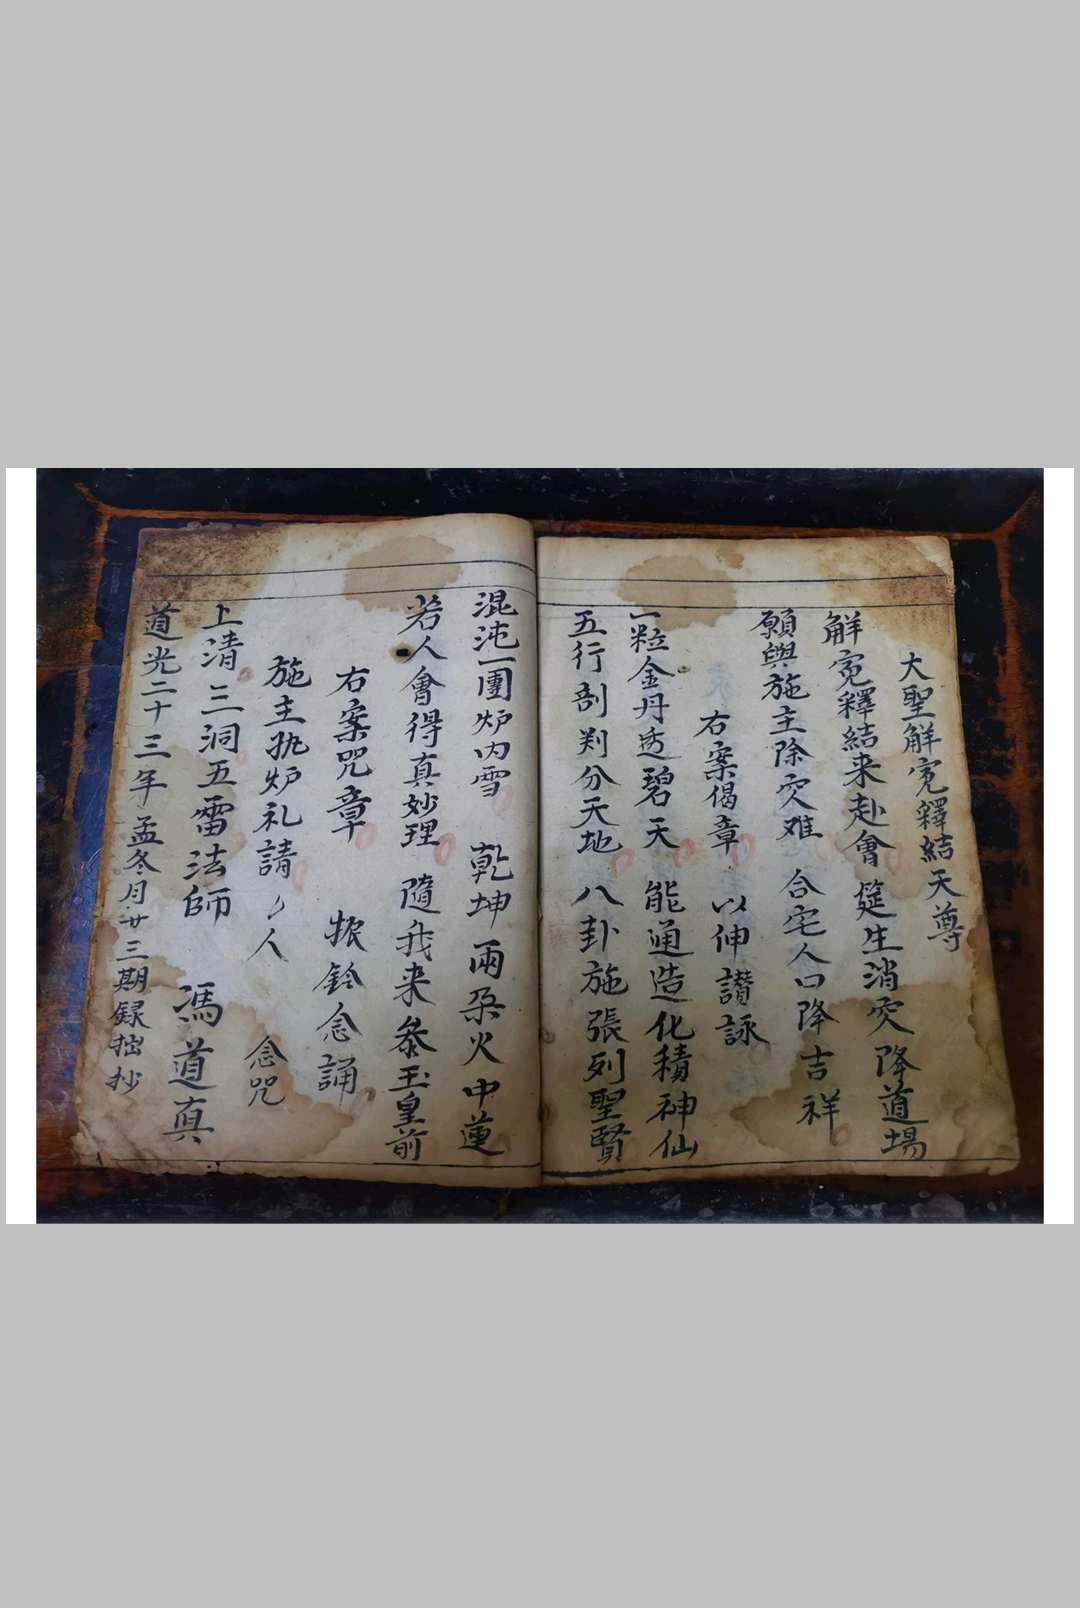 大聖解寃釋結天尊
解寃釋結来赴會 筵生消灾降道場
願與施主除灾难 合宅人口降吉祥
右案偈章 以伸讃詠
一粒金丹透碧天 能通造化積神仙
五行剖判分天地 八卦施張列聖賢
混沌一團炉内雪 乾坤兩朶火中蓮
若人會得真妙理 隨我来叅玉皇前
右案咒章 振鈴念誦
施主执炉礼請 人 念咒
上清三洞五雷法師 馮道真
道光二十三年孟冬月廿三期録拙抄